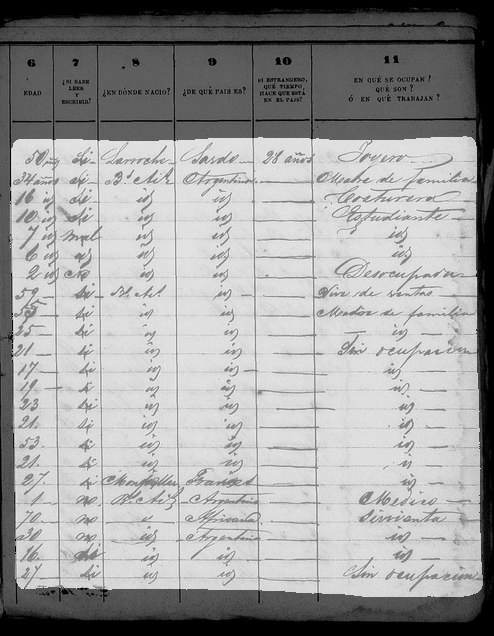 6 7 8 9 10 11
EDAD ¿NI SABE LEER Y ESCRIBIR? ¿EN DÓNDE NACIO? ¿DE QUÉ PAIS ES? SI ESTRANGERO, QUÉ TIEMPO HACE QUE ESTÁ EN EL PAIS? EN QUÉ SE OCUPAN? QUÉ SON? Ó EN QUÉ TRABAJAN?
50 id Si Sardo 28 años Joyero
34 años si Bs Ais Argentino Madre de familia
16 id si id id Costurera
10 id si id id Estudiante
7 id mal id id id
6 id id id id id
2 id no id id Desocupada
59 si Bs As id Vive de rentas
si id id Madre de familia
25 si id id id
21 si id id Sin ocupacion
17 si id id id
19 si id id id
23 si id id id
21 si id id id
53 si id id id
21 si id id id
27 si Francés
1 n Bs As Argentino Medico
70 n Africana Sirvienta
30 n id Argentino id
16 si id id id
27 si id id Sin ocupacion